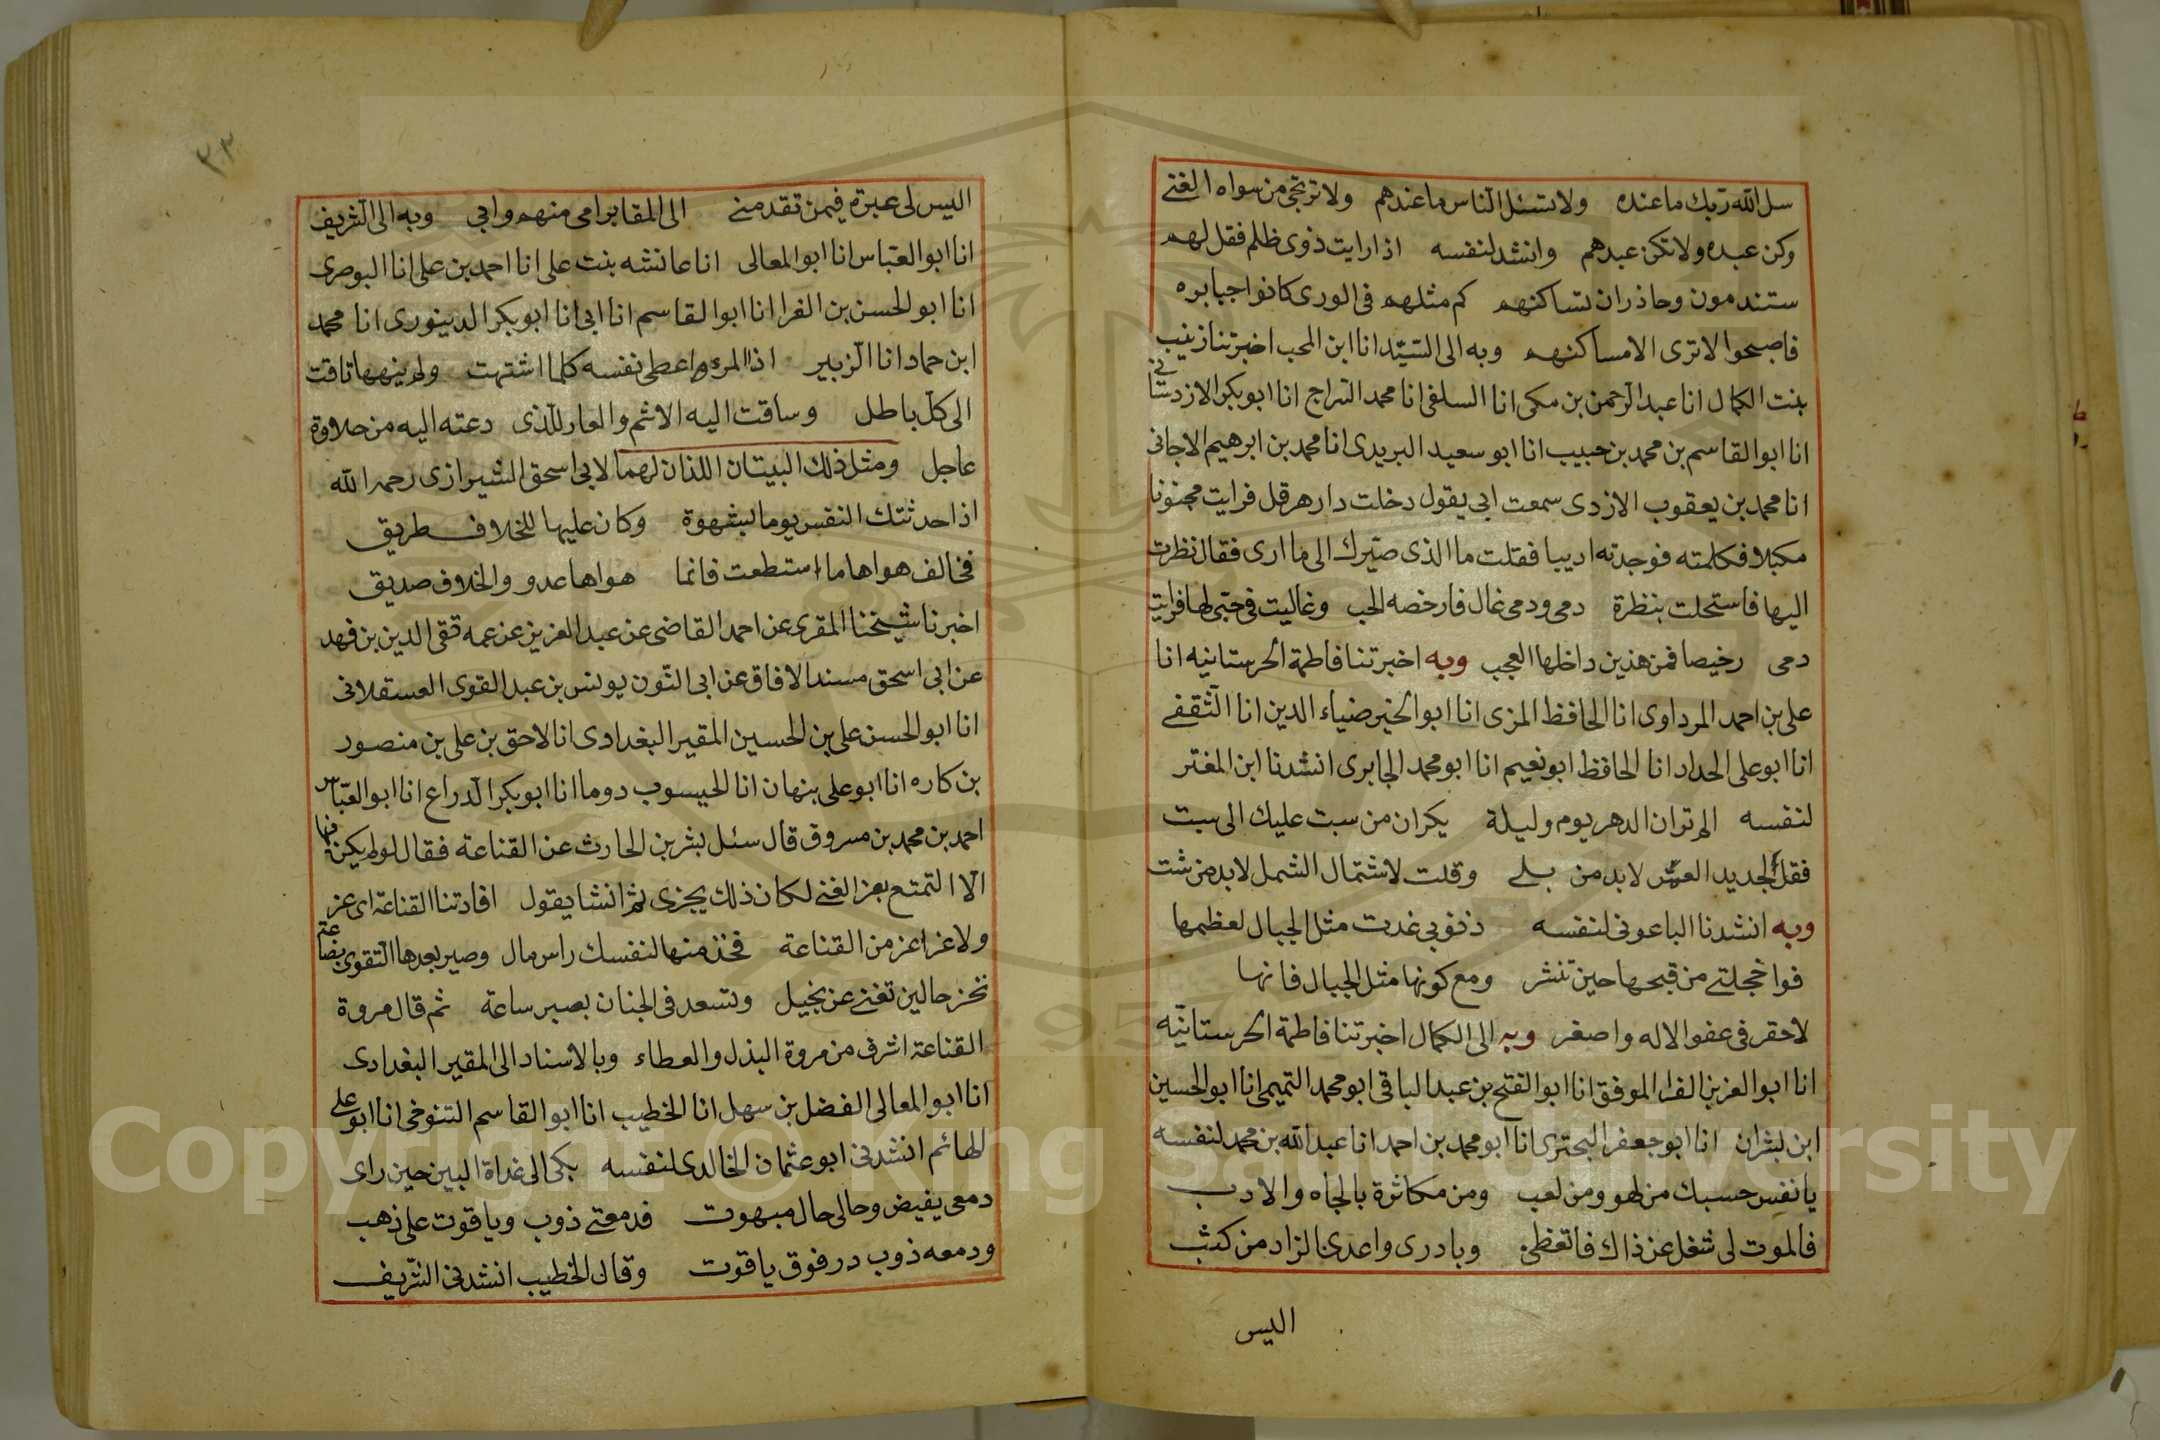 سل الله ربك ما عنده ولا تسئل الناس ما عندهم ولا ترتجى من سواه الغنى
وكن عبده ولا تكن عبدهم وانشد لنفسه اذا رايت ذوى ظلم فقل لهم
ستندمون وحاذر ان تساكنهم كم مثلهم فى الورى كانوا جبابره
فاصبحوا لا ترى الا مساكنهم وبه الى السيد انا ابن المحب اخبرتنا زينب
بنت الكمال انا عبد الرحمن بن مكى انا السلفى انا محمد السراج انا ابو بكر الازدستانى
انا ابو القاسم بن محمد بن حبيب انا ابو سعيد البريدى انا محمد بن ابرهيم الاجانى
انا محمد بن يعقوب الازدى سمعت ابى يقول دخلت دار هرقل فرايت مجنونا
مكبلا فكلمته فوجدته اديبا فقلت ما الذى صيرك الى ما ارى فقال نظرت
اليها فاستحلت بنظرة دمى ودمى غال فارخصه الحب وغاليت فى حبى لها فرايت
دمى رخيصا فمن هذين داخلها العجب وبه اخبرتنا فاطمة الحرستانيه انا
على بن احمد المرداوى انا الحافظ المزى انا ابو الخير ضياء الدين انا الثقفى
انا ابو على الحداد انا الحافظ ابو نعيم انا ابو محمد الجابرى انشدنا ابن المغتر
لنفسه الم تران الدهر يوم وليلة يكران من سبت عليك الى سبت
فقل لجديد العيش لا بد من بلى وقلت لاشتمال الشمل لا بد من شت
وبه انشدنا الباعونى لنفسه ذنوبى غدت مثل الجبال لعظمها
فوا خجلتى من قبحها حين تنشر ومع كونها مثل الجبال فانها
لاحقر فى عفو الاله واصغر وبه الى الكمال اخبرتنا فاطمة الحرستانيه
انا ابو العز بن الفرا الموفق انا ابو الفتح بن عبد الباقى ابو محمد التميمى انا ابو الحسين
ابن بشران انا ابو جعفر البحترى انا ابو محمد بن احمد انا عبد الله بن محمد لنفسه
يا نفس حسبك من لهو ومن لعب ومن مكاثرة بالجاه والادب
فالموت لى شغل عن ذاك فاتعظى وبادرى واعدى الزاد من كثب
اليس
٢٣
اليس لى عبرة فيمن تقدمنى الى المقابر امى منهم وابى وبه الى الشريف
انا ابو العباس انا ابو المعالى انا عائشه بنت على انا احمد بن على انا البوصرى
انا ابو الحسن بن الفرا انا ابو القاسم انا ابى انا ابو بكر الدينورى انا محمد
ابن حماد انا الزبير اذا المرء اعطى نفسه كلما اشتهت ولم ينهها تاقت
الى كل باطل وساقت اليه الاثم والعار للذى دعته اليه من حلاوة
عاجل ومثل ذلك البيتان اللذان لهما لابى اسحق الشيرازى رحمه الله
اذا حدثتك النفس يوما بشهوة وكان عليها للخلاف طريق
فخالف هواها ما استطعت فانما هواها عدو والخلاف صديق
اخبرنا شيخنا المقرى عن احمد القاضى عن عبد العزيز عن عمه تقى الدين بن فهد
عن ابى اسحق مسند الافاق عن ابى النون يونس بن عبد القوى العسقلانى
انا ابو الحسن على بن الحسين المقير البغدادى انا لاحق بن على بن منصور
بن كاره انا ابو على بنهان انا الحيسوب دوما انا ابو بكر الدراع انا ابو العباس
احمد بن محمد بن مسروق قال سئل بشر بن الحارث عن القناعة فقال لو لم يكن فيها
الا التمتع بعز الغنى لكان ذلك يجزى ثم انشا يقول افادتنا القناعة اى عز
ولا عز اعز من القناعة فخذ منها لنفسك راس مال وصير بعدها التقوى بضاعة
تحز حالين تغنى عن بخيل وتسعد فى الجنان بصبر ساعة ثم قال مروة
القناعة اشرف من مروة البذل والعطاء وبالاسناد الى المقير البغدادى
انا ابو المعالى الفضل بن سهل انا الخطيب انا ابو القاسم التنوخى انا ابو على
الهائم انشدنى ابو عثمان الخالدى لنفسه بكى الى غداة البين حين راى
دمعى يفيض وحالى حال مبهوت فدمعتى ذوب وياقوت على ذهب
ودمعه ذوب در فوق ياقوت وقال الخطيب انشدنى الشريف
Copyright © King Saud University